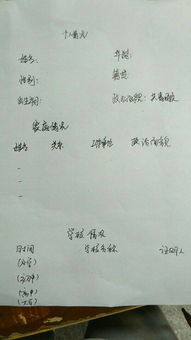 个人情况
姓名: 年龄:
性别: 籍贯:
出生日期: 政治面貌: 共青团员
家庭情况
姓名 关系 工作单位 政治面貌
-
-
-
学校情况
时间 学校名称 证明人
(小学)
(初中)
(高中)
(大学)